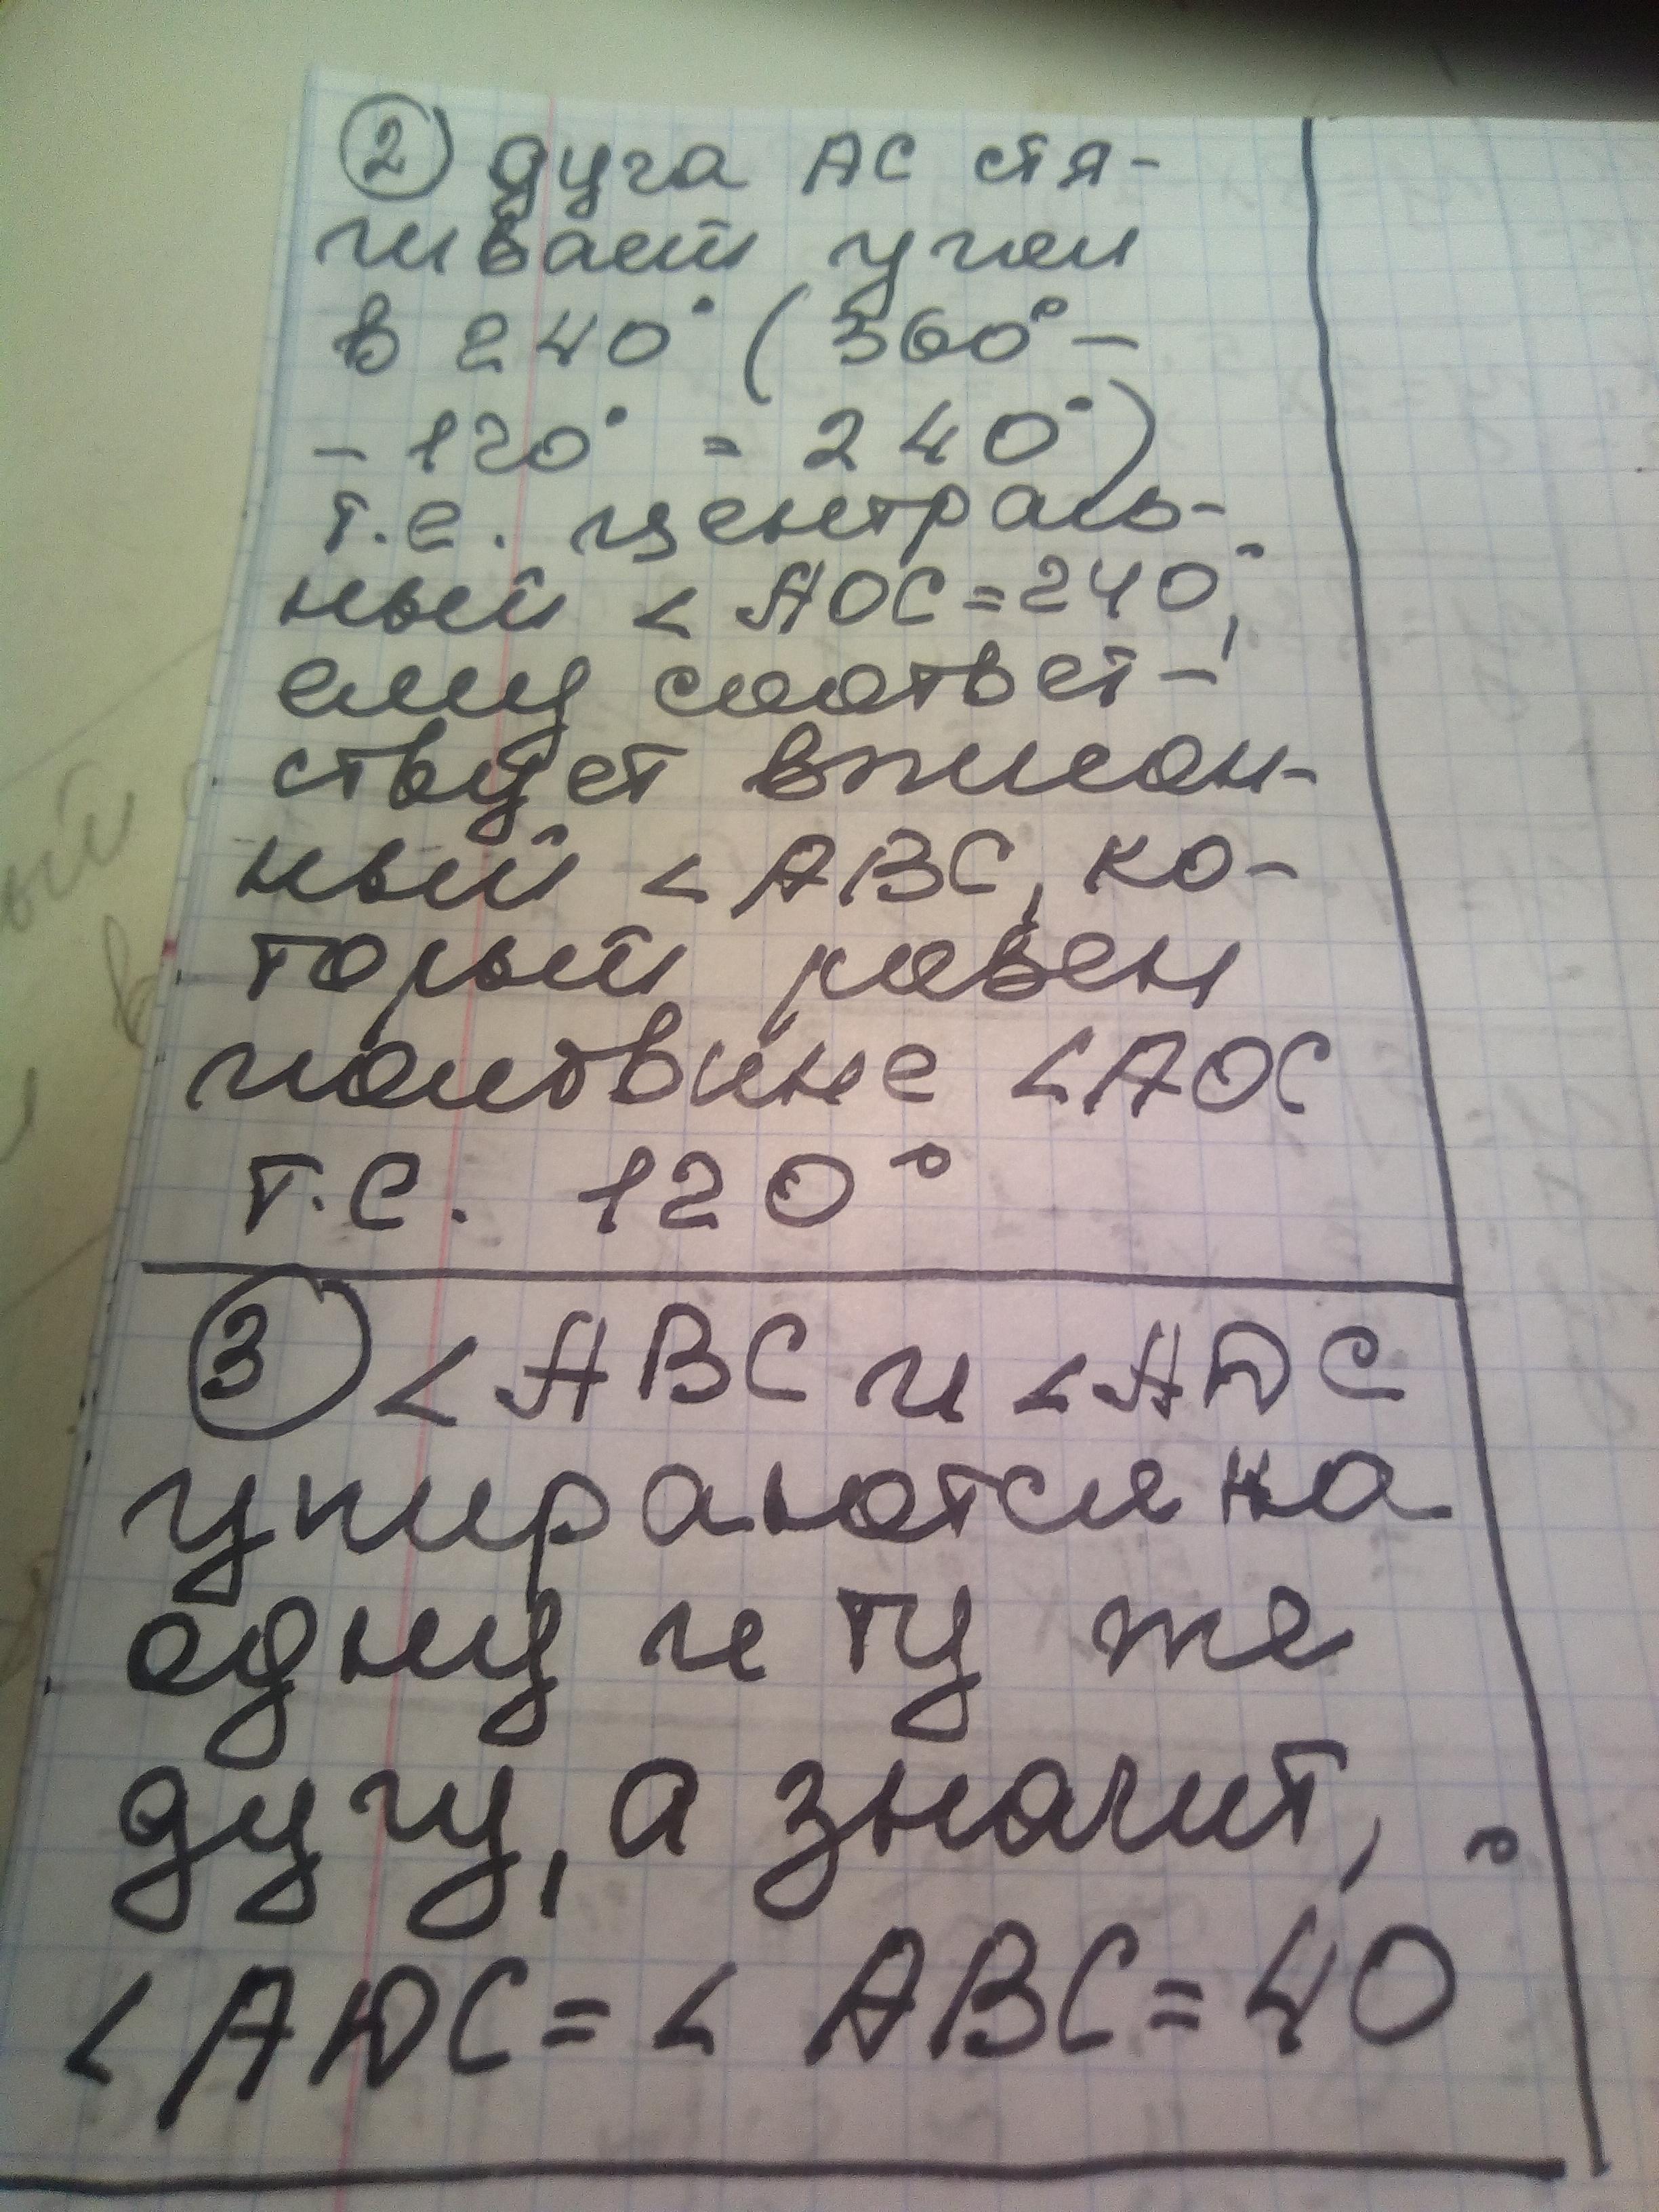 ② дуга АС стя-
гивает угол
в 240° (360° -
- 120° = 240°)
т.е. централь-
ный < АОС = 240°,
ему соответ-
ствует вписан-
ный < АВС, ко-
торый равен
половине < АОС
т.е. 120°
③ < АВС и < АDС
упираются на
одну и ту же
дугу, а значит,
< АDС = < АВС = 40°